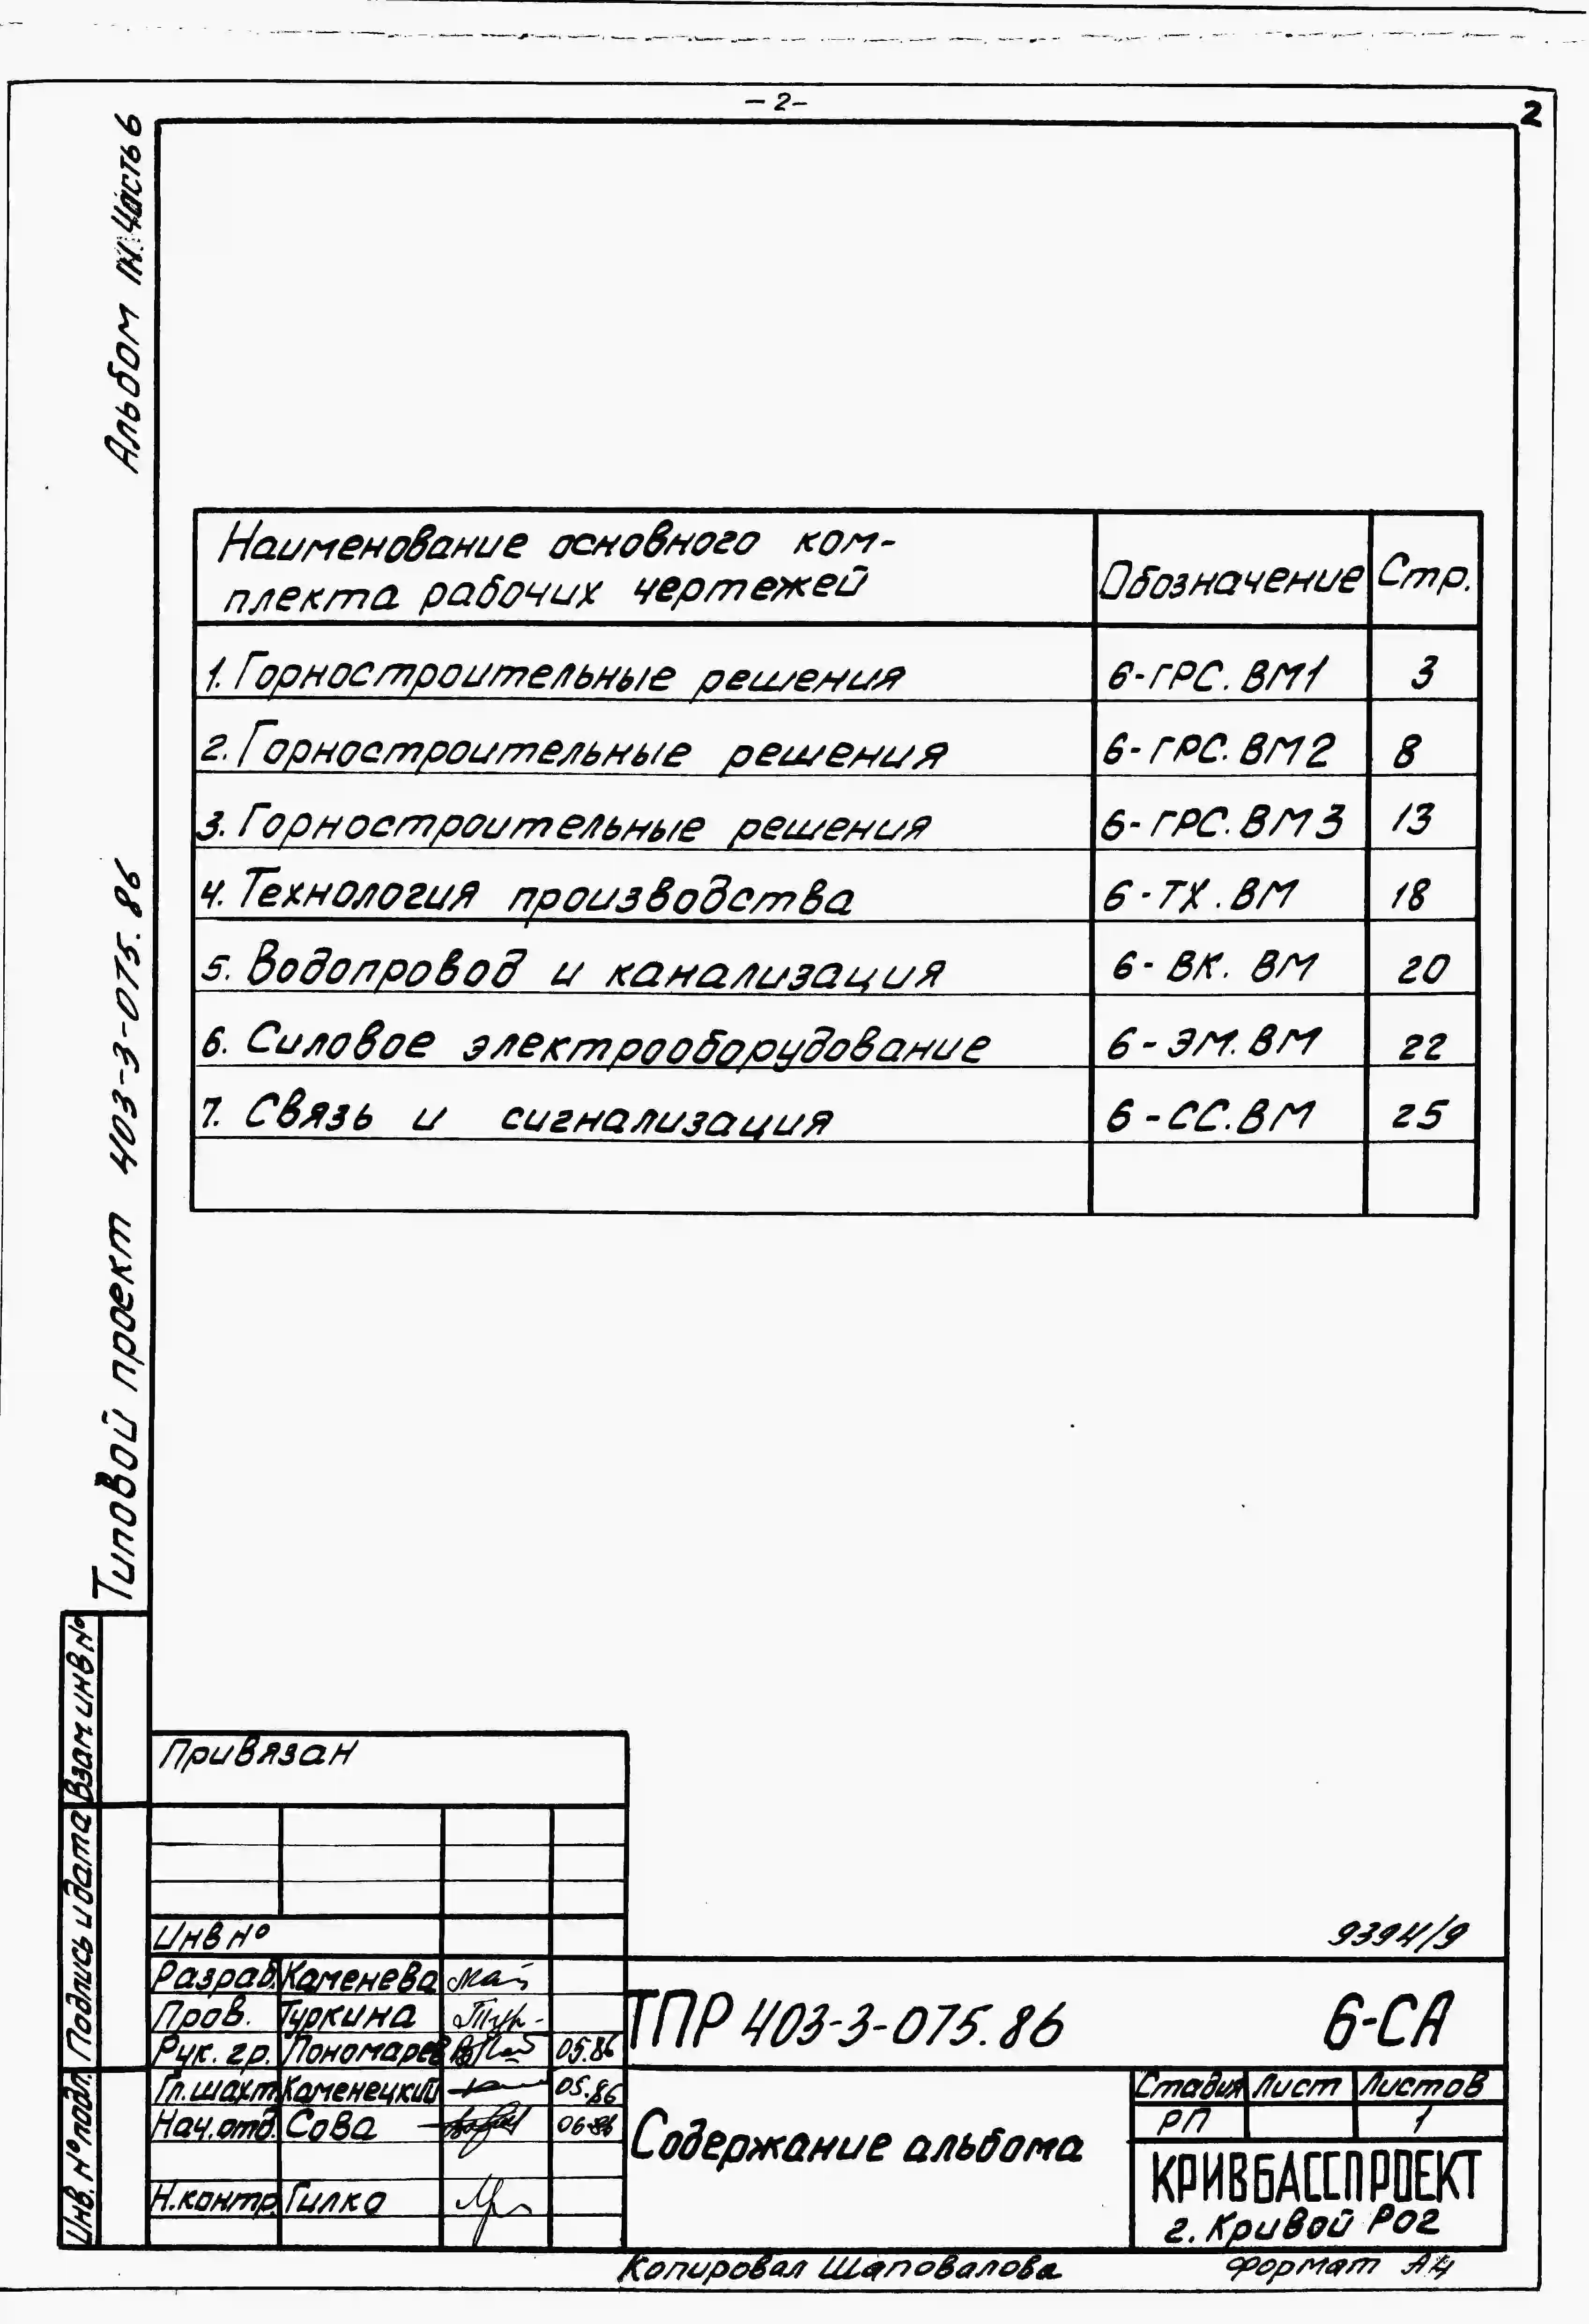 - 2 -
2
Альбом IX. Часть 6
Типовой проект 403-3-075.86
Наименование основного ком-
плекта рабочих чертежей
Обозначение
Стр.
1. Горностроительные решения 6-ГРС.ВМ1 3
2. Горностроительные решения 6-ГРС.ВМ2 8
3. Горностроительные решения 6-ГРС.ВМ3 13
4. Технология производства 6-ТХ.ВМ 18
5. Водопровод и канализация 6-ВК.ВМ 20
6. Силовое электрооборудование 6-ЭМ.ВМ 22
7. Связь и сигнализация 6-СС.ВМ 25
Взам инв №
Подпись и дата
Инв. № подл.
Привязан
Инв №
9394/9
Разраб. Каменева
Пров. Туркина
Рук. гр. Пономарев 05.86
Гл.шахт. Каменецкий 05.86
Нач.отд. Сова 06-86
Н.контр. Гилко
ТПР 403-3-075.86 6-СА
Содержание альбома
Стадия Лист Листов
РП 1
КРИВБАССПРОЕКТ
г. Кривой Рог
Копировал Шаповалова
Формат А4